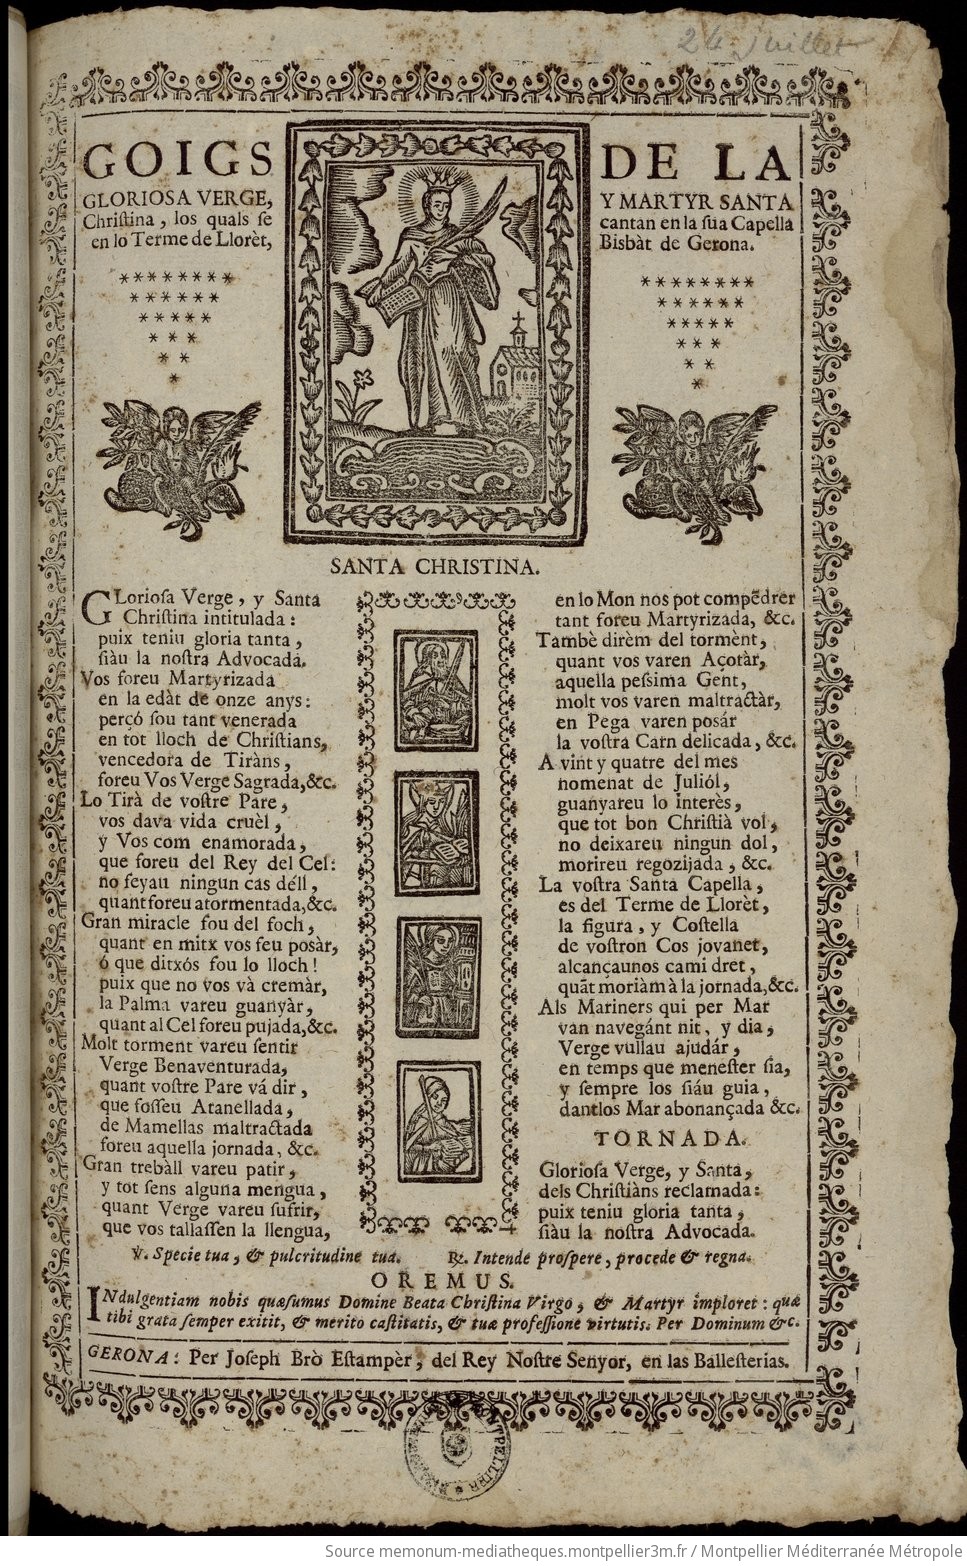 24 juillet
GOIGS DE LA
GLORIOSA VERGE, Y MARTYR SANTA
Chriſtina, los quals ſe cantan en la ſua Capella
en lo Terme de Llorèt, Bisbàt de Gerona.
SANTA CHRISTINA.
GLorioſa Verge, y Santa
Chriſtina intitulada:
puix teniu gloria tanta,
ſiàu la noſtra Advocada.
Vos foreu Martyrizada
en la edàt de onze anys:
perçó ſou tant venerada
en tot lloch de Chriſtians,
vencedora de Tiràns,
foreu Vos Verge Sagrada,&c.
Lo Tirà de voſtre Pare,
vos dava vida cruèl,
y Vos com enamorada,
que foreu del Rey del Cel:
no feyau ningun cas déll,
quant foreu atormentada,&c.
Gran miracle fou del foch,
quant en mitx vos feu posàr,
ó que ditxós fou lo lloch!
puix que no vos và cremàr,
la Palma vareu guanyàr,
quant al Cel foreu pujada,&c.
Molt torment vareu ſentir
Verge Benaventurada,
quant voſtre Pare vá dir,
que foſſeu Atanellada,
de Mamellas maltractada
foreu aquella jornada, &c.
Gran trebàll vareu patir,
y tot ſens alguna mengua,
quant Verge vareu ſufrir,
que vos tallaſſen la llengua,
en lo Mon nos pot compēdrer
tant foreu Martyrizada, &c.
Tambè dirèm del tormènt,
quant vos varen Açotàr,
aquella peſsima Gent,
molt vos varen maltractàr,
en Pega varen posár
la voſtra Carn delicada, &c.
A vint y quatre del mes
nomenat de Juliól,
guanyareu lo interès,
que tot bon Chriſtià vol,
no deixareu ningun dol,
morireu regozijada, &c.
La voſtra Santa Capella,
es del Terme de Llorèt,
la figura, y Coſtella
de voſtron Cos jovanet,
alcançaunos cami dret,
quāt moriàm à la jornada,&c.
Als Mariners qui per Mar
van navegánt nit, y dia,
Verge vullau ajudár,
en temps que meneſter ſia,
y ſempre los ſiáu guia,
dantlos Mar abonançada &c.
TORNADA.
Glorioſa Verge, y Santa,
dels Chriſtiàns reclamada:
puix teniu gloria tanta,
ſiàu la noſtra Advocada.
℣. Specie tua, & pulcritudine tua. ℟. Intende proſpere, procede & regna.
OREMUS.
INdulgentiam nobis quæſumus Domine Beata Chriſtina Virgo, & Martyr imploret: quæ
tibi grata ſemper exitit, & merito caſtitatis, & tuæ profeſſione virtutis. Per Dominum &c.
GERONA: Per Joſeph Brò Eſtampèr, del Rey Noſtre Senyor, en las Balleſterias.
Source memonum-mediatheques.montpellier3m.fr / Montpellier Méditerranée Métropole